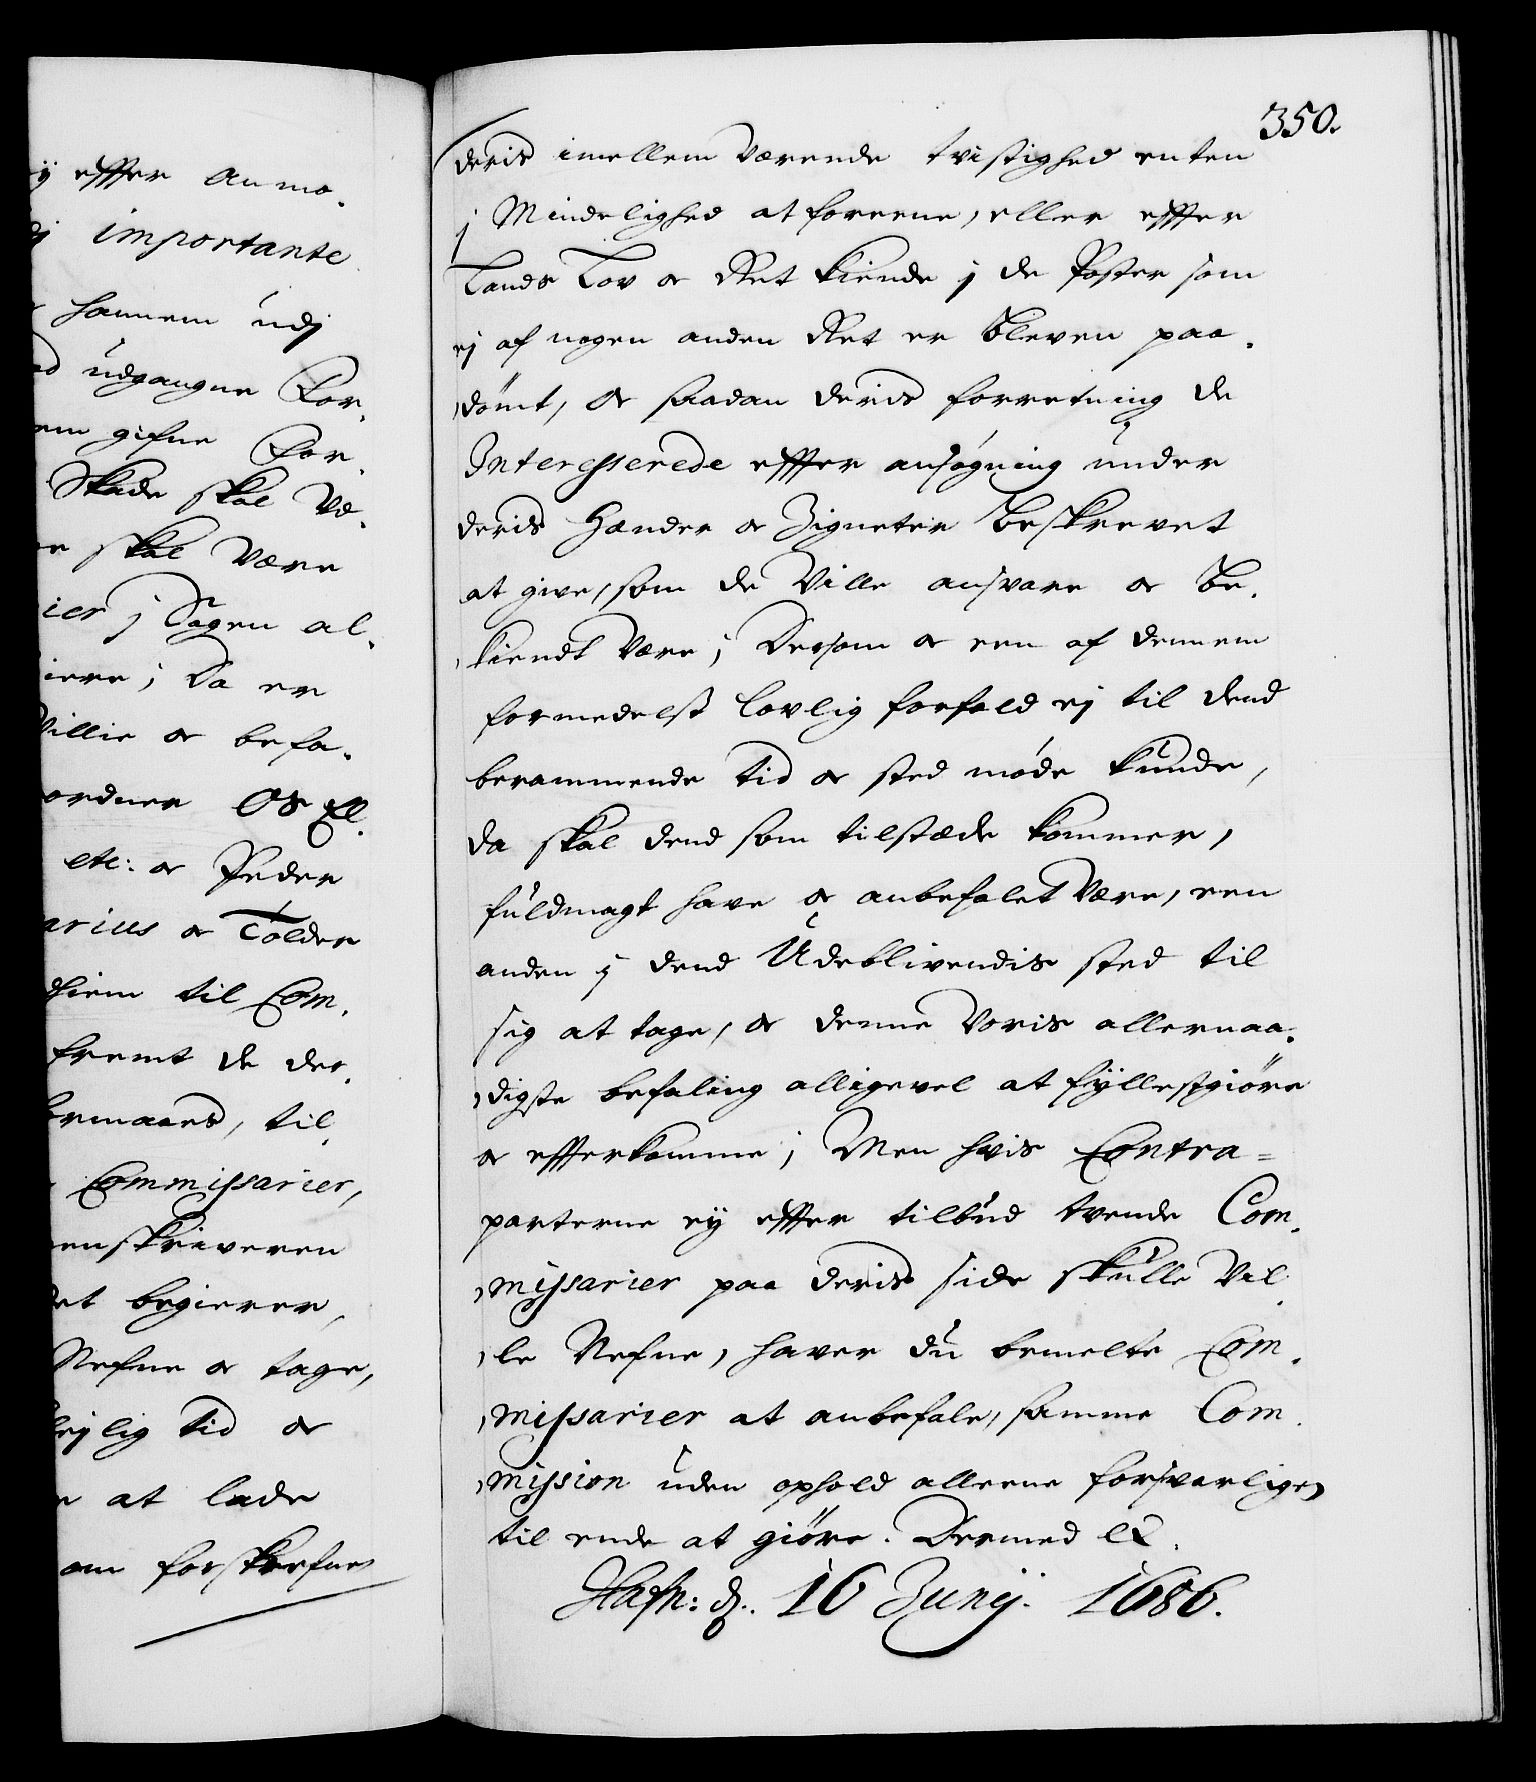 ÿ effter anmo-
dj importante
hannem udj
ed udgangne For-
em gifne For-
Skade skal Væ-
e skal Være
ier j Sagen al-
iere; Da er
Villie oc befa-
ordner OS El.
etc: oc Peder
arius oc Tolder
dhiem til Com-
fremt de der-
formaaes, til
Commissarier,
enskriveren
det begierer,
Nefne oc tage,
lejlig tid oc
e at lade
om forskrefne
350.
deris imellem værende tvistighed enten
j Mindelighed at foreene, eller effter
Lands Lov oc Ret kiende j de Poster som
ej af nogen anden Ret er bleven paa-
dömt, oc saadan deris forretning de
Interesserede effter ansøgning under
deris Hænder oc Zigneter beskrevet
at give, som de Ville ansvare oc be-
kiendt være; Dersom oc een af dennem
formedelst lovlig forfald ej til dend
berammende tid oc sted møde kunde,
da skal dend som tilstæde kommer,
fuldmagt have oc anbefalet være, een
anden j dend Udeblivendis sted til
sig at tage, oc denne Voris allernaa-
digste befaling alligevel at fyllestgiöre
oc effterkomme; Men hvis Contra=
parterne eÿ effter tilbud tvende Com-
missarier paa deris side skulle Vil-
le Nefne, haver du bemelte Com-
missarier at anbefale, samme Com-
mission uden ophold alleene forsvarligen
til ende at giöre. Dermed etc.
Hafn: d. 16 Junÿ. 1686.